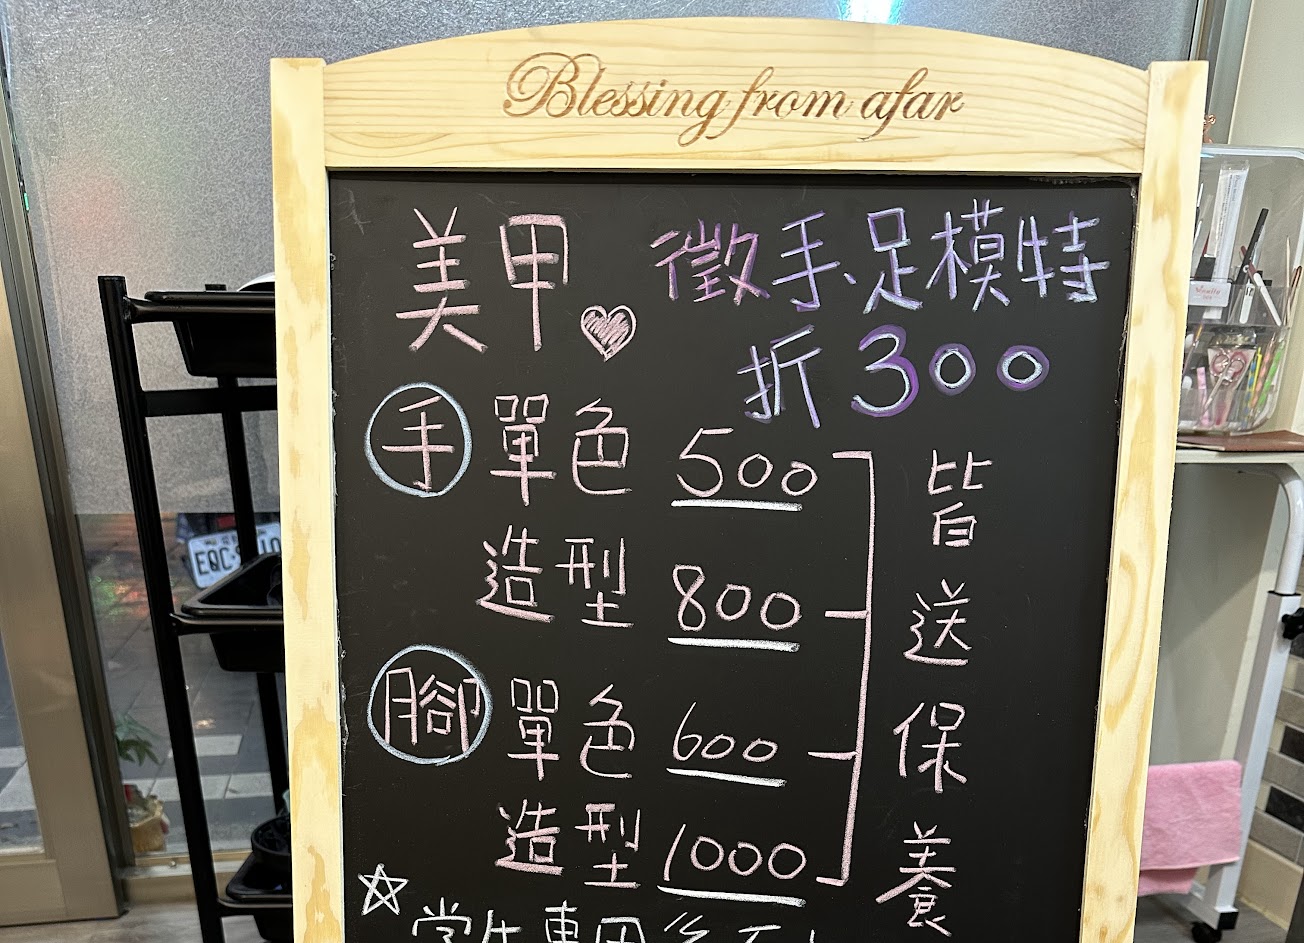 Blessing from afar
美甲 徵手、足模特
折300
手 單色 500
造型 800
腳 單色 600
造型 1000
皆送保養
學生專用
EQC